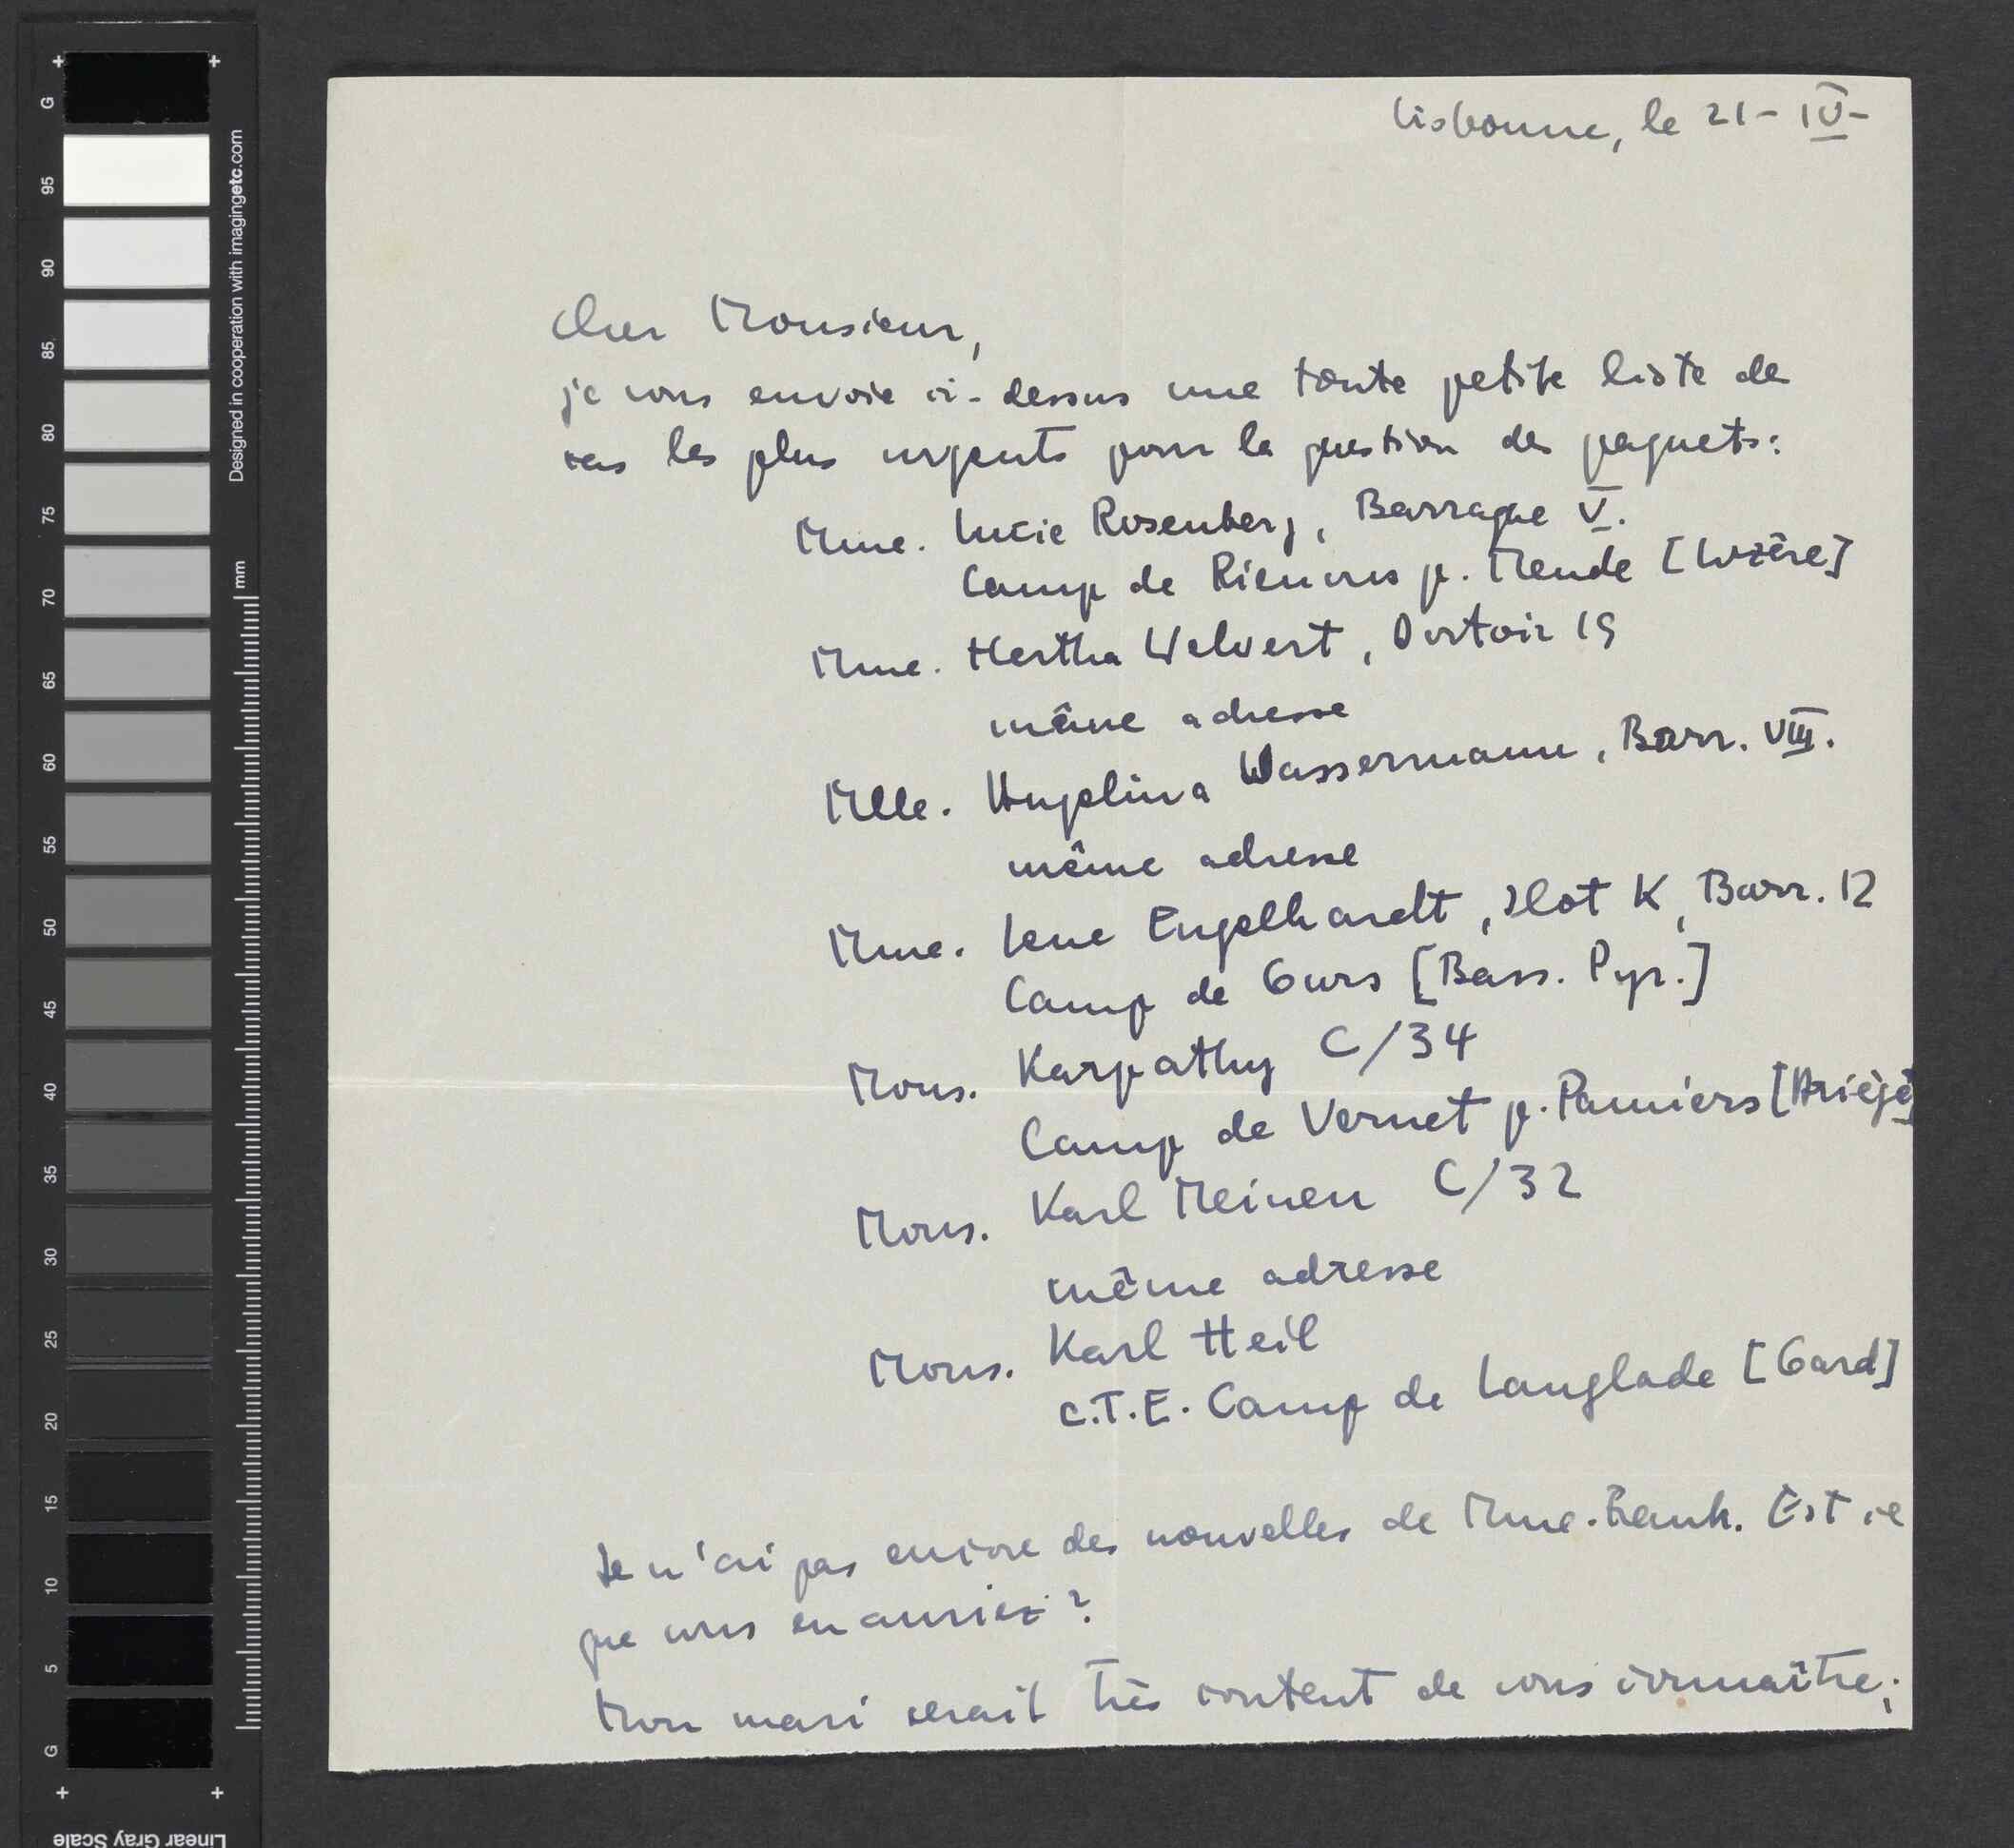 Lisbonne, le 21-IV-
Cher Monsieur,
je vous envoie ci-dessus une toute petite liste de
cas les plus urgents pour la question des paquets:
Mme. Lucie Rosenberg, Barraque V.
Camp de Rieucros p. Mende [Lozère]
Mme. Hertha Welvert, Dortoir 19
même adresse
Mlle. Angelina Wassermann, Barr. VIII.
même adresse
Mme. Lene Engelhardt, Ilot K, Barr. 12
Camp de Gurs [Bass. Pyr.]
Mons. Karpathy C/34
Camp de Vernet p. Pamiers [Ariège]
Mons. Karl Meinen C/32
même adresse
Mons. Karl Heil
C.T.E. Camp de Langlade [Gard]
Je n'ai pas encore des nouvelles de Mme. Est ce
que vous en auriez?
Mon mari serait très content de vous connaître;
G
95
90
85
80
75
70
65
60
55
50
45
40
35
30
25
20
15
10
5
G
Designed in cooperation with imagingetc.com
mm
Linear Gray Scale